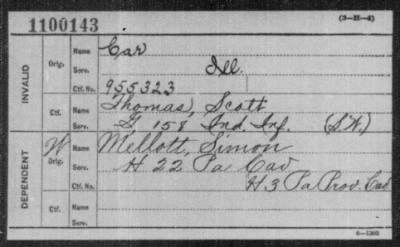 1100143
(3-H-4)
INVALID
Orig.
Name Car
Serv. Ill.
Ctf. No. 955323
Ctf.
Name Thomas, Scott
Serv. G 158 Ind. Inf. (S.W.)
DEPENDENT
W
Orig.
Name Mellott, Simon
Serv. H 22 Pa Cav
Ctf. No. H 3 Pa Prov. Cav
Ctf.
Name
Serv.